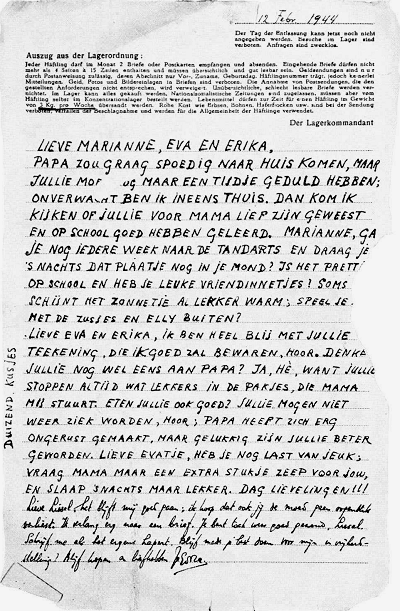 12 Febr. 1944
Der Tag der Entlassung kann jetzt noch nicht
angegeben werden. Besuche im Lager sind
verboten. Anfragen sind zwecklos.
Auszug aus der Lagerordnung:
Jeder Häftling darf im Monat 2 Briefe oder Postkarten empfangen und absenden. Eingehende Briefe dürfen nicht
mehr als 4 Seiten à 15 Zeilen enthalten und müssen übersichtlich und gut lesbar sein. Geldsendungen sind nur
durch Postanweisung zulässig, deren Abschnitt nur Vor-, Zuname, Geburtstag, Häftlingsnummer trägt, jedoch keinerlei
Mitteilungen. Geld, Fotos und Bildereinlagen in Briefen sind verboten. Die Annahme von Postsendungen, die den
gestellten Anforderungen nicht entsprechen, wird verweigert. Unübersichtliche, schlecht lesbare Briefe werden ver-
nichtet. Im Lager kann alles gekauft werden. Nationalsozialistische Zeitungen sind zugelassen, müssen aber vom
Häftling selbst im Konzentrationslager bestellt werden. Lebensmittel dürfen zur Zeit für einen Häftling im Gewicht
von 3 Kg. pro Woche übersandt werden. Rohe Kost wie Erbsen, Bohnen, Haferflocken usw. sind bei der Sendung
verboten, verfallen der Beschlagnahme und werden für die Allgemeinheit der Häftlinge verwendet.
Der Lagerkommandant
LIEVE MARIANNE, EVA EN ERIKA.
PAPA ZOU GRAAG SPOEDIG NAAR HUIS KOMEN, MAAR
JULLIE MOE OG MAAR EEN TIJDJE GEDULD HEBBEN;
ONVERWACHT BEN IK INEENS THUIS. DAN KOM IK
KIJKEN OF JULLIE VOOR MAMA LIEF ZIJN GEWEEST
EN OP SCHOOL GOED HEBBEN GELEERD. MARIANNE, GA
JE NOG IEDERE WEEK NAAR DE TANDARTS EN DRAAG JE
'S NACHTS DAT PLAATJE NOG IN JE MOND? IS HET PRETTI
OP SCHOOL EN HEB JE LEUKE VRIENDINNETJES? SOMS
SCHIJNT HET ZONNETJE AL LEKKER WARM; SPEEL JE
MET DE ZUSJES EN ELLY BUITEN?
LIEVE EVA EN ERIKA, IK BEN HEEL BLIJ MET JULLIE
TEEKENING, DIE IK GOED ZAL BEWAREN, HOOR. DENKE
JULLIE NOG WEL EENS AAN PAPA? JA, HÈ, WANT JULLIE
STOPPEN ALTIJD WAT LEKKERS IN DE PAKJES, DIE MAMA
MIJ STUURT. ETEN JULLIE OOK GOED? JULLIE MOGEN NIET
WEER ZIEK WORDEN, HOOR; PAPA HEEFT ZICH ERG
ONGERUST GEMAAKT, MAAR GELUKKIG ZIJN JULLIE BETER
GEWORDEN. LIEVE EVATJE, HEB JE NOG LAST VAN JEUK;
VRAAG MAMA MAAR EEN EXTRA STUKJE ZEEP VOOR JOU,
EN SLAAP 'S NACHTS MAAR LEKKER. DAG LIEVELINGEN!!!
Lieve Liesel, het blijft mij goed gaan; ik hoop dat ook jij de moed geen oogenblik
verliest. Ik verlang erg naar een brief. Je bent toch weer goed gezond, Liesel.
Schrijf me als het eenigszins. Blijf
stelling? Blijf hopen en liefhebben
DUIZEND KUSJES